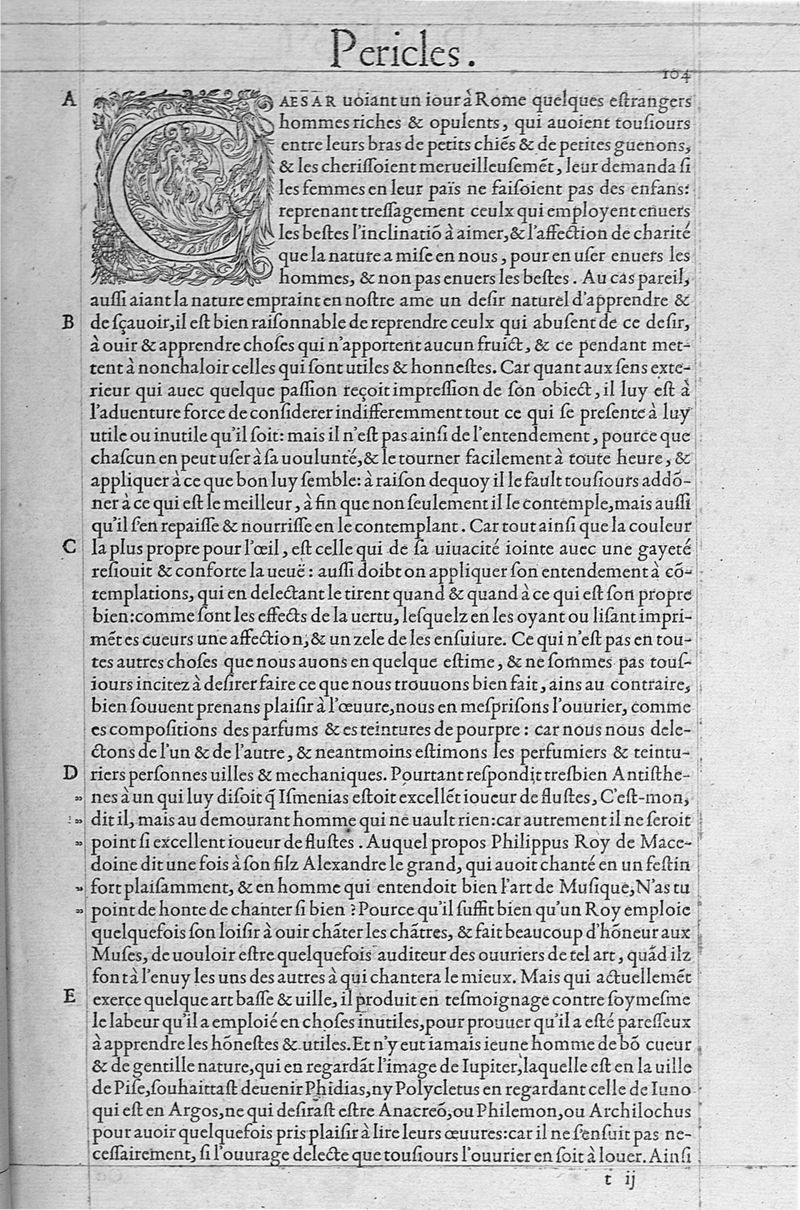 Pericles.
104
A
CAESAR uoiant un iour à Rome quelques eſtrangers
hommes riches & opulents, qui auoient touſiours
entre leurs bras de petits chiés & de petites guenons,
& les cheriſſoient merueilleuſemẽt, leur demanda ſi
les femmes en leur païs ne faiſoient pas des enfans:
reprenant treſſagement ceulx qui employent enuers
les beſtes l'inclinatiõ à aimer, & l'affection de charité
que la nature a miſe en nous, pour en uſer enuers les
hommes, & non pas enuers les beſtes. Au cas pareil,
auſſi aiant la nature empraint en noſtre ame un deſir naturel d'apprendre &
B
de ſçauoir, il eſt bien raiſonnable de reprendre ceulx qui abuſent de ce deſir,
à ouir & apprendre choſes qui n'apportent aucun fruict, & ce pendant met-
tent à nonchaloir celles qui ſont utiles & honneſtes. Car quant aux ſens exte-
rieur qui auec quelque paſſion reçoit impreſſion de ſon obiect, il luy eſt à
l'aduenture force de conſiderer indifferemment tout ce qui ſe preſente à luy
utile ou inutile qu'il ſoit: mais il n'eſt pas ainſi de l'entendement, pource que
chaſcun en peut uſer à ſa uoulunté, & le tourner facilement à toute heure, &
appliquer à ce que bon luy ſemble: à raiſon dequoy il le fault touſiours addõ-
ner à ce qui eſt le meilleur, à fin que non ſeulement il le contemple, mais auſſi
qu'il ſ'en repaiſſe & nourriſſe en le contemplant. Car tout ainſi que la couleur
C
la plus propre pour l'œil, eſt celle qui de ſa uiuacité iointe auec une gayeté
reſiouit & conforte la ueuë: auſſi doibt on appliquer ſon entendement à cõ-
templations, qui en delectant le tirent quand & quand à ce qui eſt ſon propre
bien: comme ſont les effects de la uertu, leſquelz en les oyant ou liſant impri-
mẽt es cueurs une affection, & un zele de les enſuiure. Ce qui n'eſt pas en tou-
tes autres choſes que nous auons en quelque eſtime, & ne ſommes pas touſ-
iours incitez à deſirer faire ce que nous trouuons bien fait, ains au contraire,
bien ſouuent prenans plaiſir à l'œuure, nous en meſpriſons l'ouurier, comme
es compoſitions des parfums & es teintures de pourpre: car nous nous dele-
ctons de l'un & de l'autre, & neantmoins eſtimons les perfumiers & teintu-
D
riers perſonnes uilles & mechaniques. Pourtant reſpondit treſbien Antiſthe-
nes à un qui luy diſoit q̃ Iſmenias eſtoit excellẽt ioueur de fluſtes, C'eſt-mon,
dit il, mais au demourant homme qui ne uault rien: car autrement il ne ſeroit
point ſi excellent ioueur de fluſtes. Auquel propos Philippus Roy de Mace-
doine dit une fois à ſon filz Alexandre le grand, qui auoit chanté en un feſtin
fort plaiſamment, & en homme qui entendoit bien l'art de Muſique, N'as tu
point de honte de chanter ſi bien? Pource qu'il ſuffit bien qu'un Roy emploie
quelquefois ſon loiſir à ouir chãter les chãtres, & fait beaucoup d'hõneur aux
Muſes, de uouloir eſtre quelquefois auditeur des ouuriers de tel art, quãd ilz
font à l'enuy les uns des autres à qui chantera le mieux. Mais qui actuellemẽt
E
exerce quelque art baſſe & uille, il produit en teſmoignage contre ſoymeſme
le labeur qu'il a emploié en choſes inutiles, pour prouuer qu'il a eſté pareſſeux
à apprendre les hõneſtes & utiles. Et n'y eut iamais ieune homme de bõ cueur
& de gentille nature, qui en regardãt l'image de Iupiter, laquelle eſt en la uille
de Piſe, ſouhaittaſt deuenir Phidias, ny Polycletus en regardant celle de Iuno
qui eſt en Argos, ne qui deſiraſt eſtre Anacreõ, ou Philemon, ou Archilochus
pour auoir quelquefois pris plaiſir à lire leurs œuures: car il ne ſ'enſuit pas ne-
ceſſairement, ſi l'ouurage delecte que touſiours l'ouurier en ſoit à louer. Ainſi
t ij